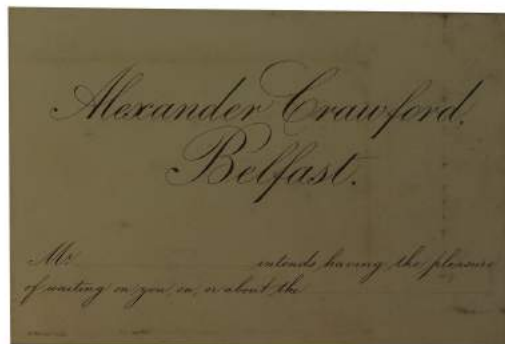 Alexander Crawford,
Belfast.
Mr. intends having the pleasure
of waiting on you on or about the